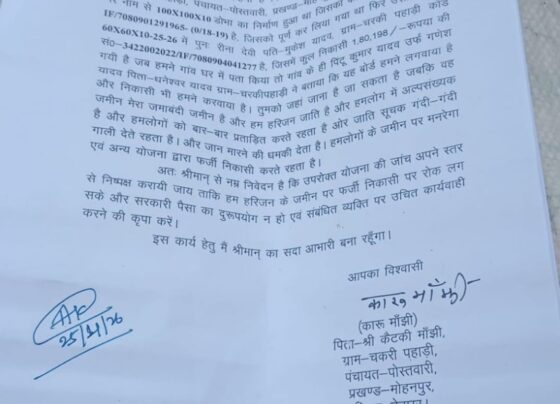 पंचायत–पोस्तवारी, प्रखण्ड–
र नाम से 100X100X10 डोभा का निर्माण हुआ था जिसका
IF/7080901291965- (0/18-19) है, जिसको पूर्ण कर लिया गया था फिर
60X60X10-25-26 में पुनः रीना देवी पति–मुकेश यादव, ग्राम–चरकी पहाड़ी कोड
सं0–3422002022/IF/7080904041277 है, जिसमें कुल निकासी 1,80,198/–रूपया की
गयी है जब हमने गांव घर में पता किया तो गाँव के ही पिंटू कुमार यादव उर्फ गणेश
यादव पिता–धनेश्वर यादव ग्राम–चरकीपहाड़ी ने बताया कि यह बोर्ड हमने लगवाया है
और निकासी भी हमने करवाया है। तुमको जहां जाना है जा सकता है जबकि यह
जमीन मेरा जमाबंदी जमीन है और हम हरिजन जाति है और हमलोग में अल्पसंख्यक
है और हमलोगों को बार–बार प्रताड़ित करते रहता है ओर जाति सूचक गंदी–गंदी
गाली देते रहता है। और जान मारने की धमकी देता है। हमलोगों के जमीन पर मनरेगा
एवं अन्य योजना द्वारा फर्जी निकासी करते रहता है।
अतः श्रीमान् से नम्र निवेदन है कि उपरोक्त योजना की जांच अपने स्तर
से निष्पक्ष करायी जाय ताकि हम हरिजन के जमीन पर फर्जी निकासी पर रोक लग
सके और सरकारी पैसा का दुरूपयोग न हो एवं संबंधित व्यक्ति पर उचित कार्यवाही
करने की कृपा करें।
इस कार्य हेतु मैं श्रीमान् का सदा आभारी बना रहूँगा।
आपका विश्वासी
कारू माँझी
(कारू माँझी)
पिता–श्री कैटकी माँझी,
ग्राम–चकरी पहाड़ी,
पंचायत–पोस्तवारी,
प्रखण्ड–मोहनपुर,
25/4/26